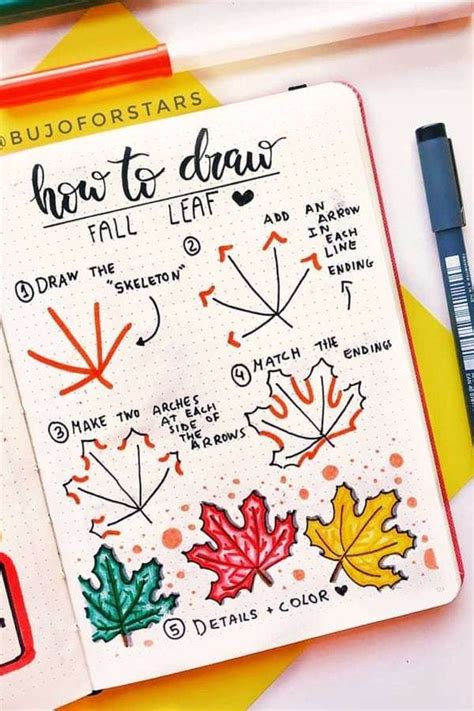 @BUJOFORSTARS
how to draw
FALL LEAF ♥
① DRAW THE
"SKELETON"
②
ADD AN
ARROW
IN
EACH
LINE
ENDING
③ MAKE TWO ARCHES
AT EACH
SIDE OF
THE
ARROWS
④ MATCH THE
ENDINGS
⑤ DETAILS + COLOR ♥